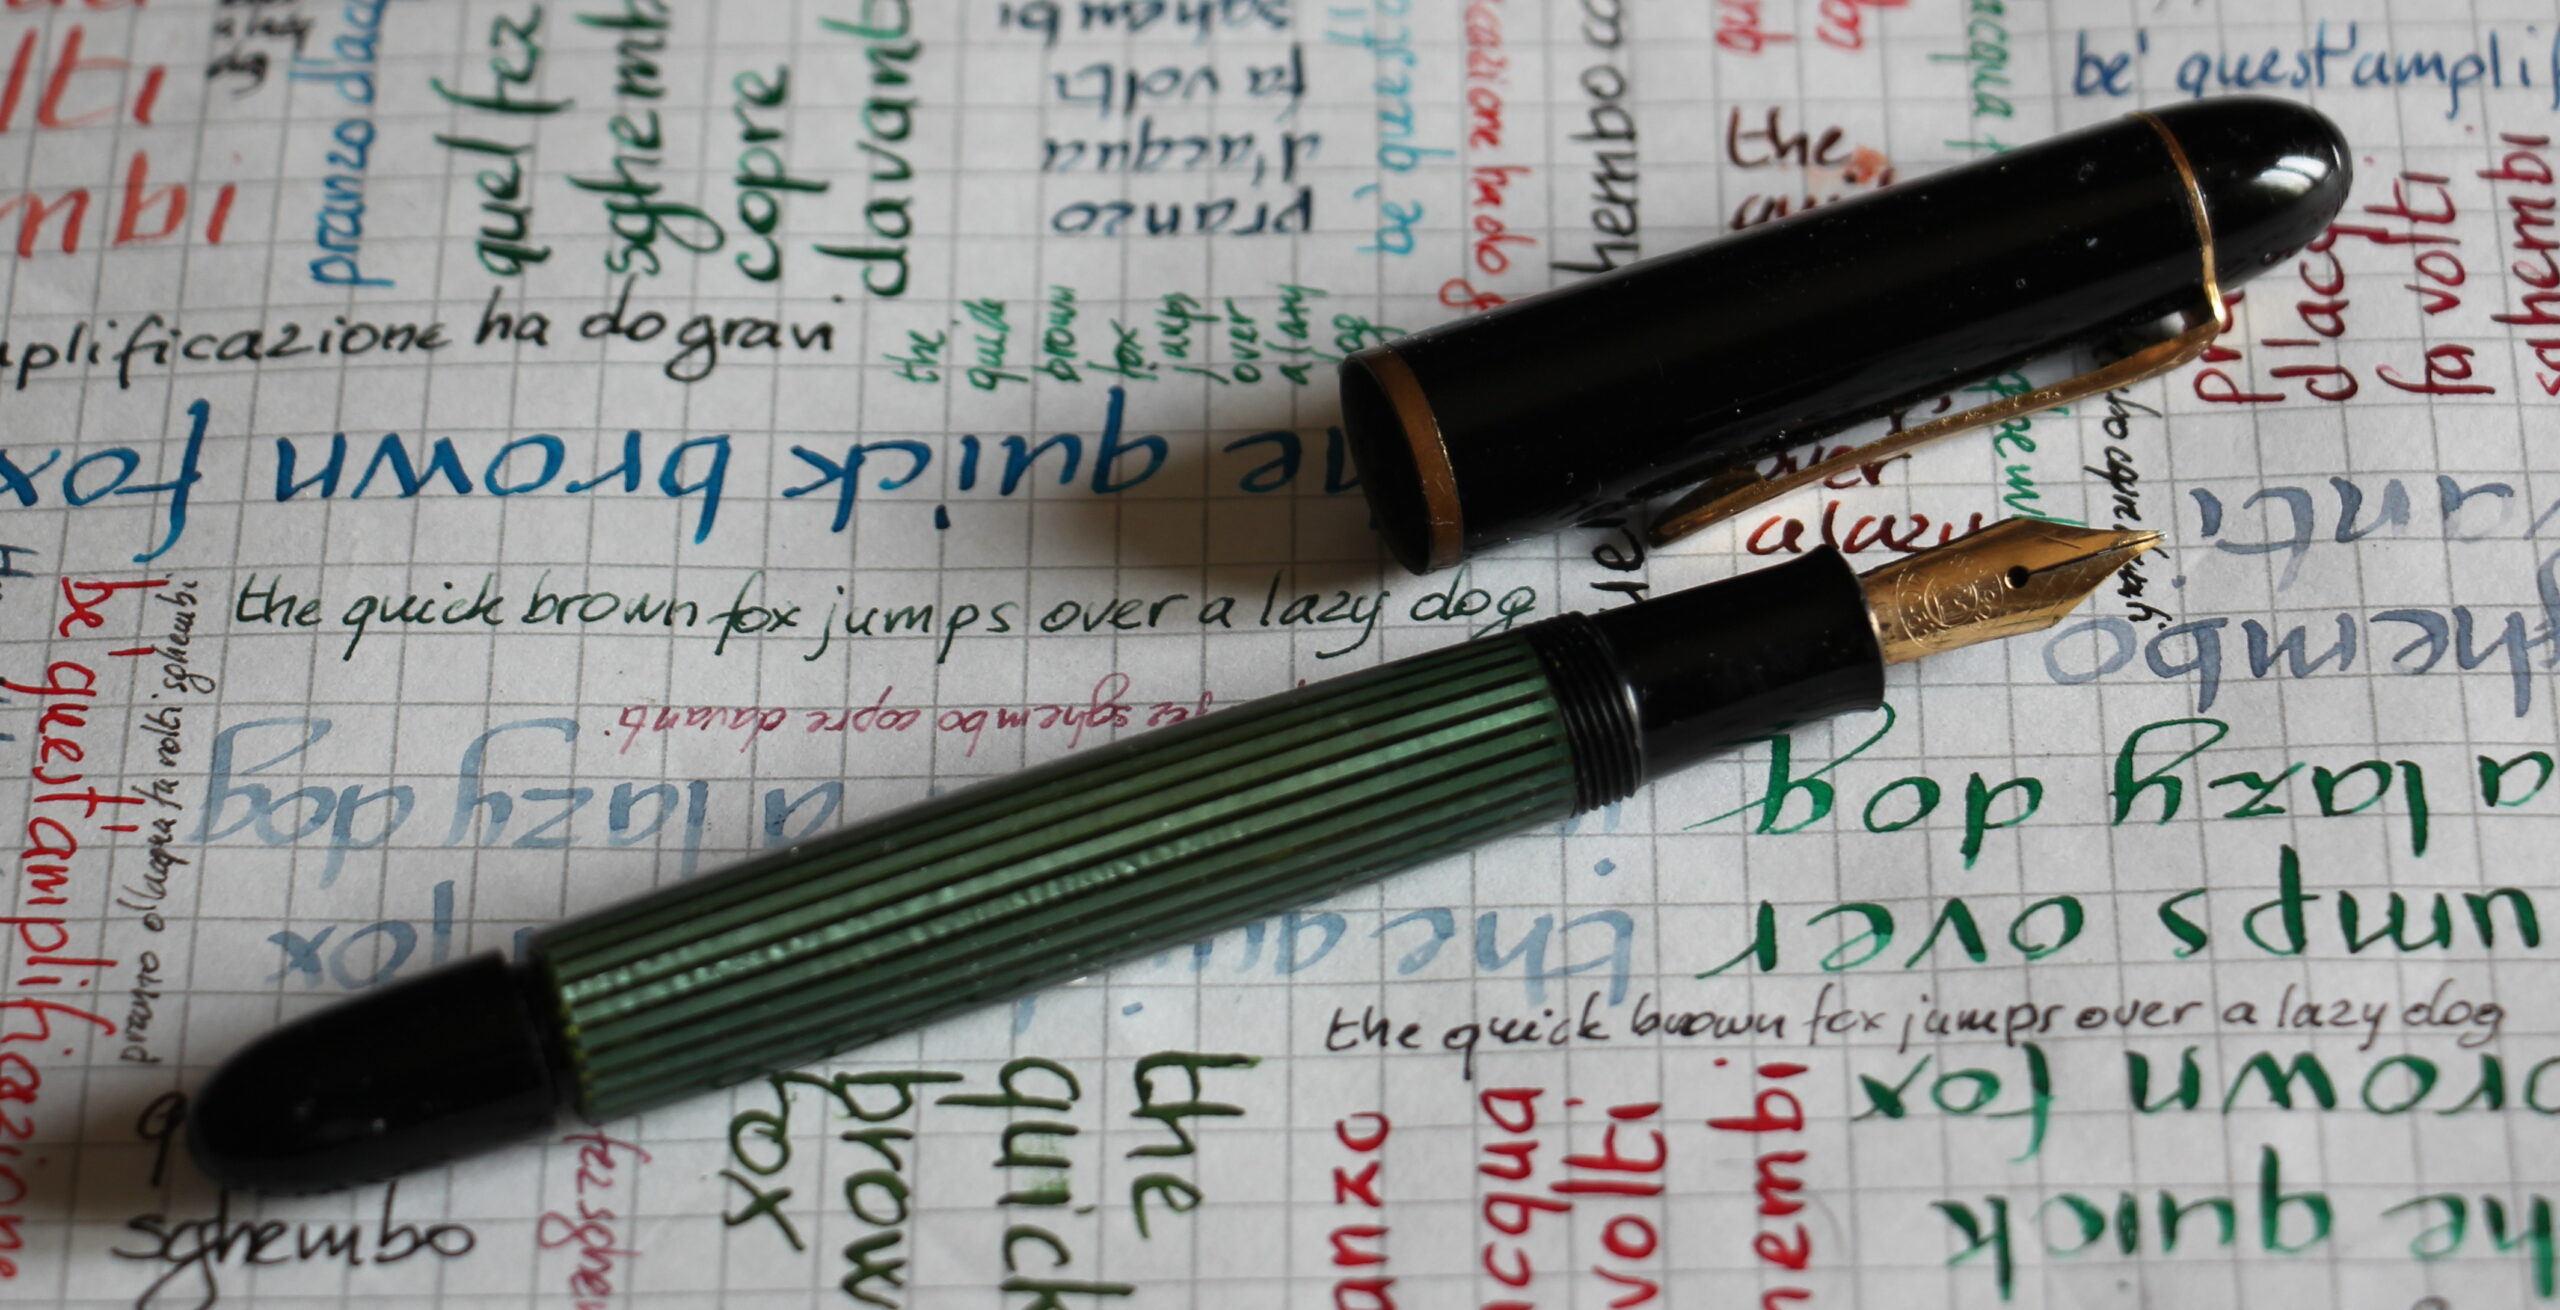 be' quest'amplif
pranzo d'acq
quel fez
sghemb
copre
davant
sghembi
fa volti
d'acqua
pranzo
be' quest'
cazione ha do g
hembo co
the
acqua f
d'acq
fa volti
sghembi
plificazione ha do gravi
the
quick
brown
fox
jumps
over
a lazy
dog
he quick brown
fox
over
a lazy
the quick brown fox jumps over a lazy dog
be' quest'amplificazione
pranzo d'acqua fa volti sghembi
fez sghembo copre davanti
a lazy dog
fox
the qui
anti
ghembo
the quick
brown fox
umps over
a lazy dog
the quick brown fox jumps over a lazy dog
sghembo
fez sghem
the
quick
brow
fox
anzo
acqua
volti
hembi